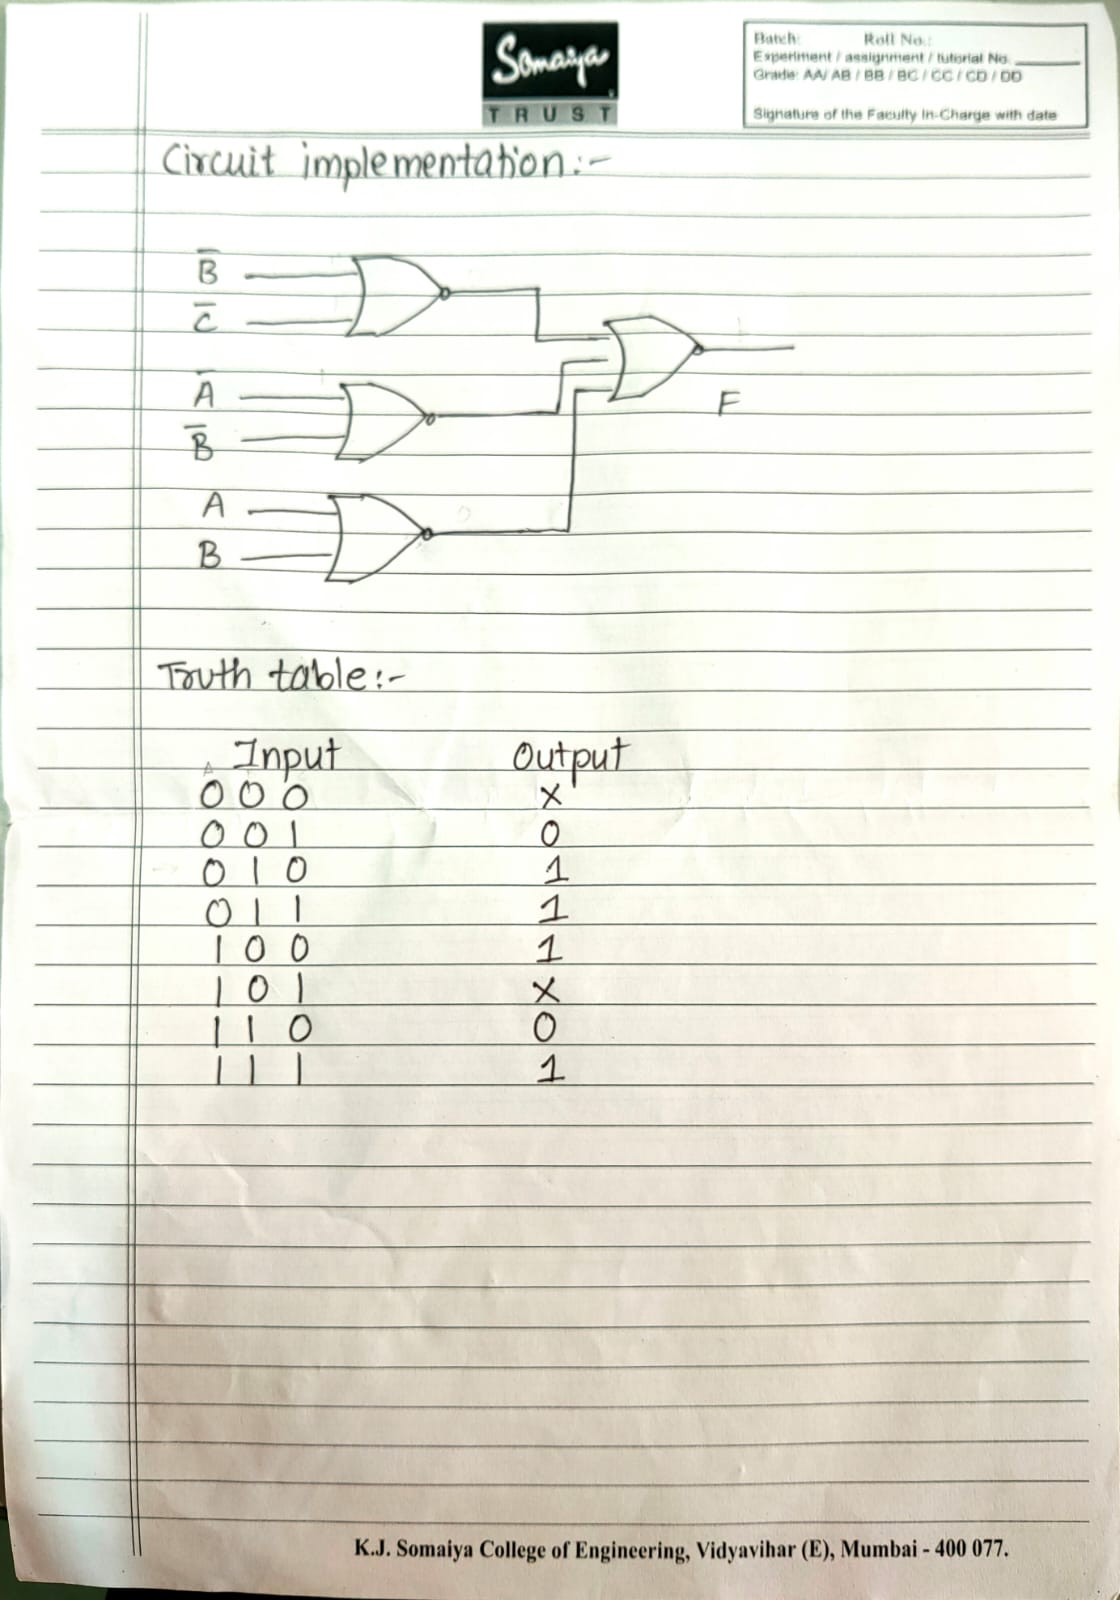 Somaiya
TRUST
Batch: Roll No.:
Experiment / assignment / tutorial No.
Grade: AA/ AB / BB / BC / CC / CD / DD
Signature of the Faculty In-Charge with date
Circuit implementation:-
B̅
C̅
A̅
B̅
F
A
B
Truth table:-
Input Output
A
0 0 0 X
0 0 1 0
0 1 0 1
0 1 1 1
1 0 0 1
1 0 1 X
1 1 0 0
1 1 1 1
K.J. Somaiya College of Engineering, Vidyavihar (E), Mumbai - 400 077.